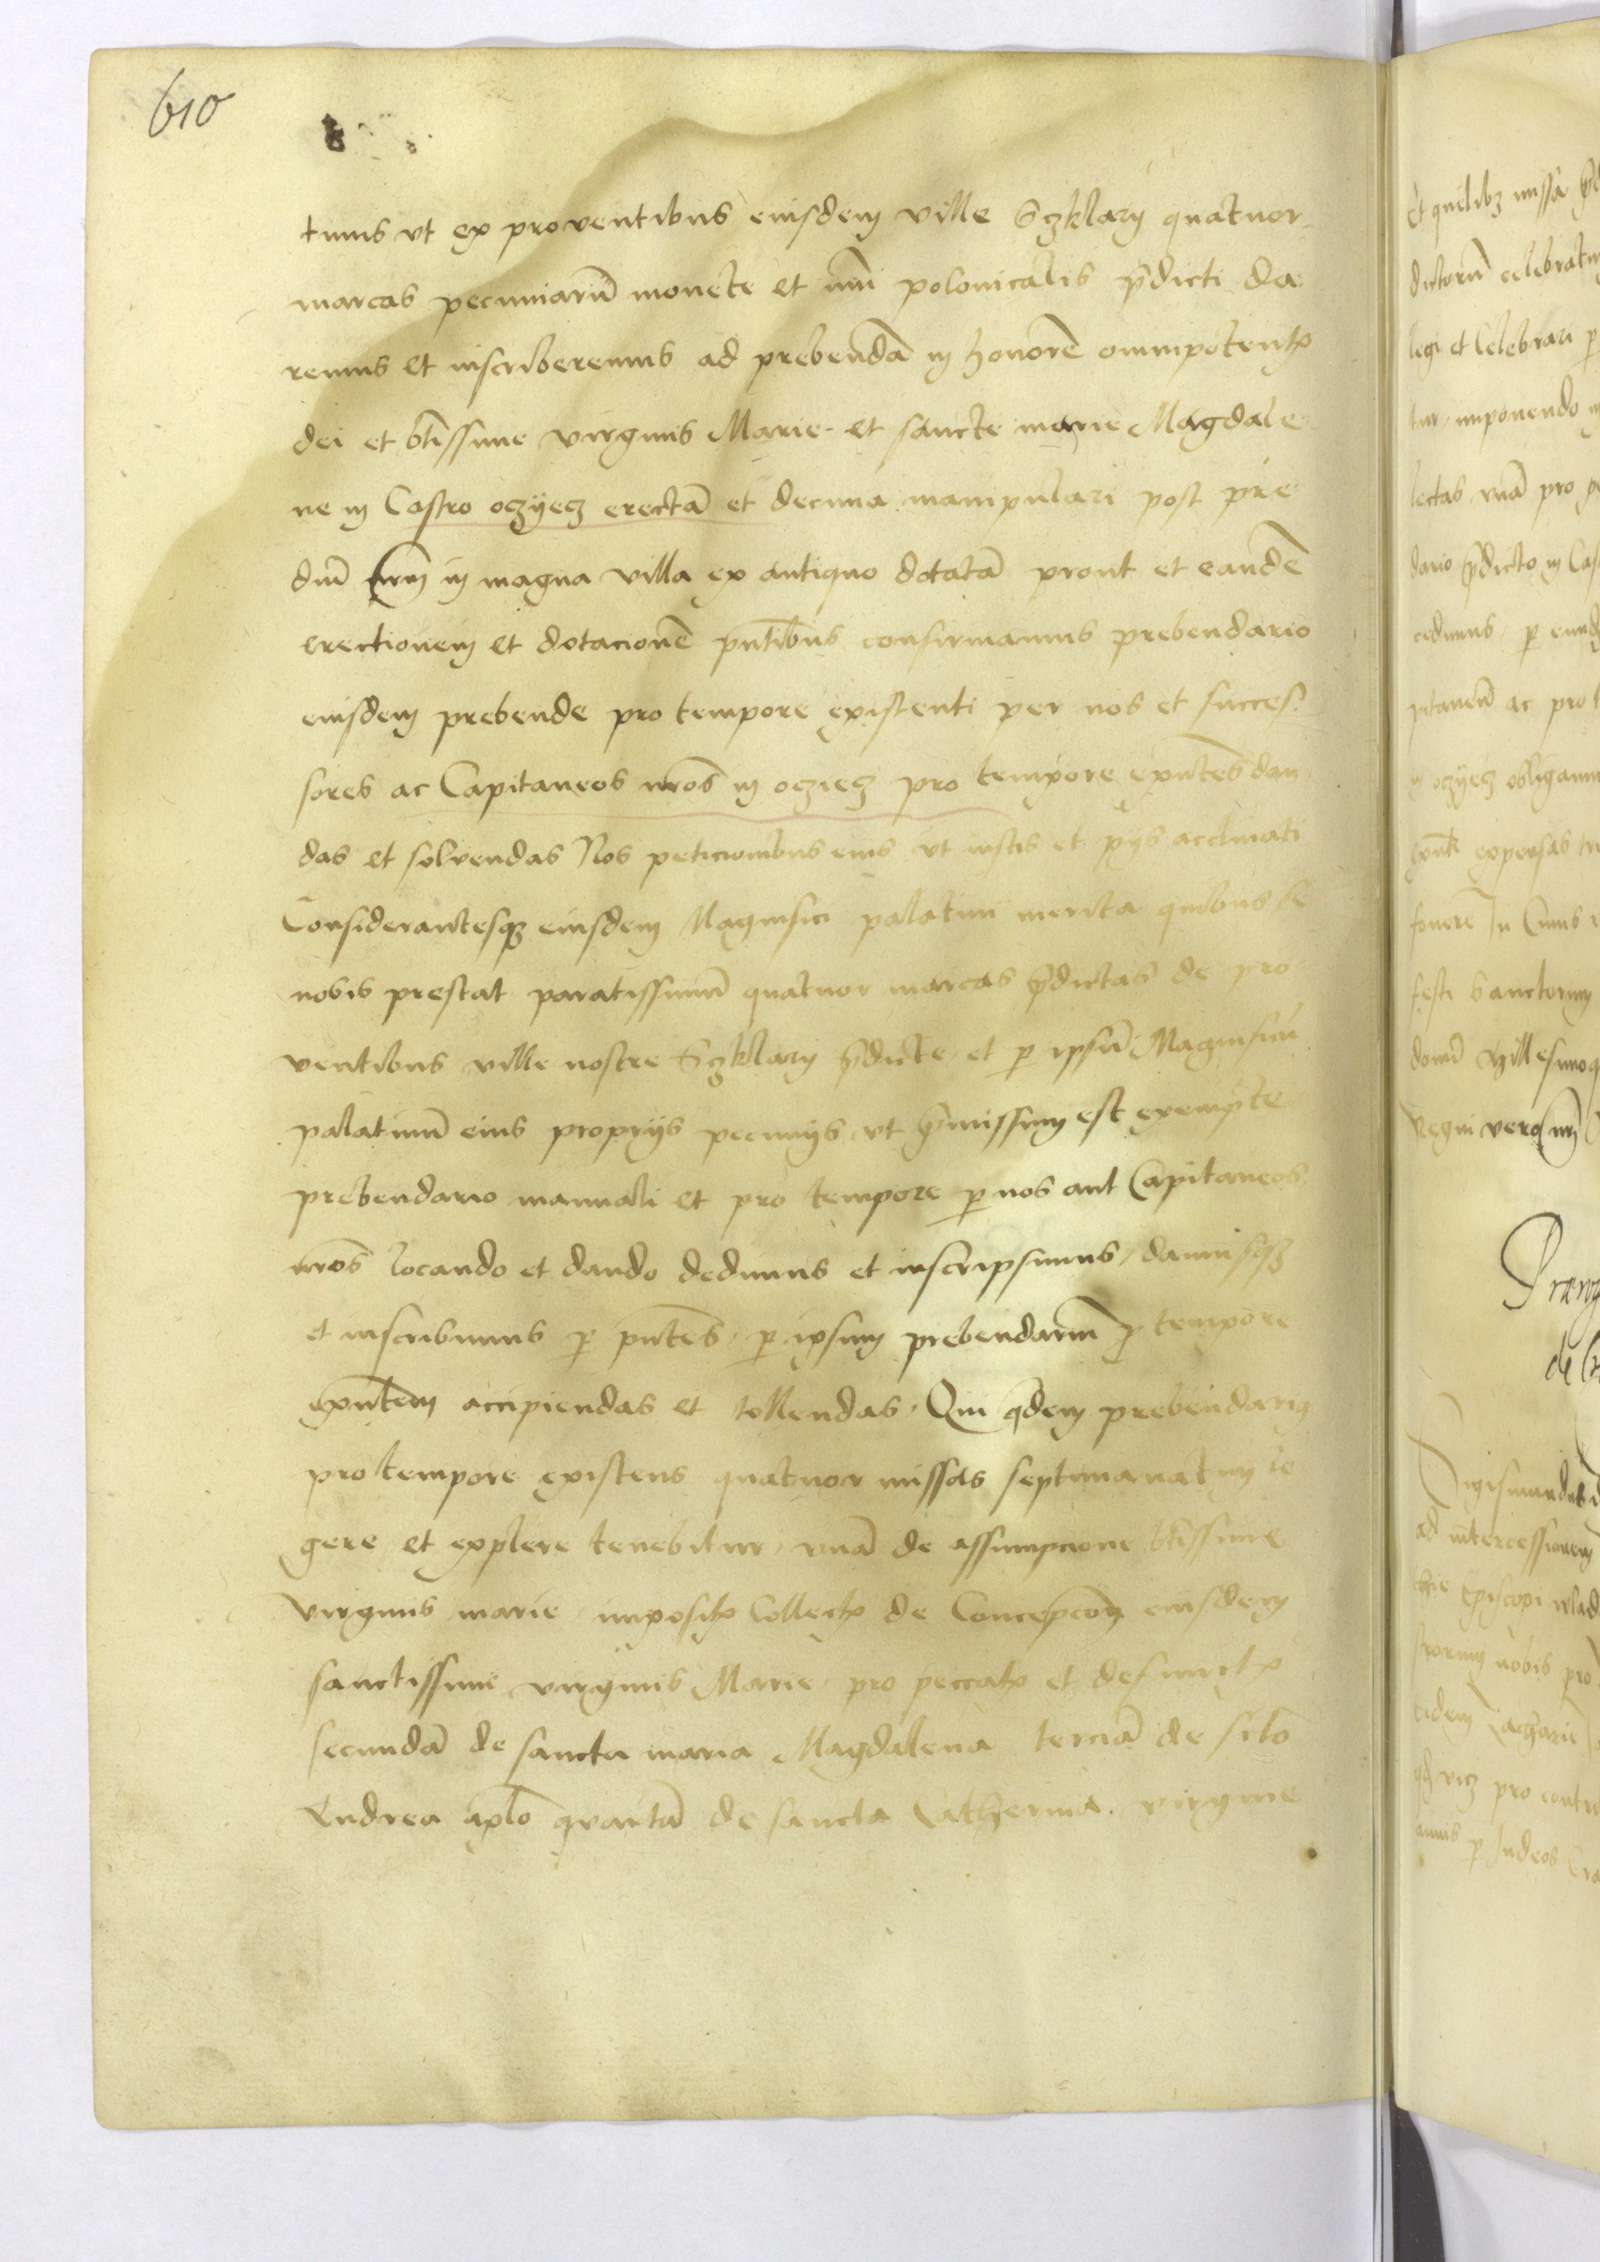 610
timus vt ex proventibus eiusdem ville Szklary quatuor
marcas pecuniarū monete et nūi polonicalis p̄dicti da
remus et inscriberemus ad prebendā in honorē omnipotentis
dei et btissime virginis Marie et sancte marie Magdale
ne in Castro oczyecz erectā et decima manipulari post pre
diū nrm in magna villa ex antiquo dotatā prout et eandē
erectionem et dotacionē pntibus confirmamus prebendario
eiusdem prebende pro tempore existenti per nos et succes
sores ac Capitaneos nros in ocziecz pro tempore exntes dan
das et solvendas Nos peticionibus eius vt iustis et pijs acclinati
Considerantesqz eiusdem Magnifici palatini merita quibus se
nobis prestat paratissimū quatuor marcas p̄dictas de pro
ventibus ville nostre Szklary p̄dicte et p ipsū Magnificū
palatinū eius proprijs pecunijs vt p̄missum est exempte
prebendario manuali et pro tempore p nos aut Capitaneos
nros locando et dando dedimus et inscripsimus damusqz
et inscribimus p pntes p ipsum prebendariū p tempore
exntem accipiendas et tollendas Qui qdem prebendarius
pro tempore existens quatuor missas septimanatim le
gere et explere tenebitur vnā de assumpcione btissime
virginis marie impositis Collectis de Concepcone eiusdem
sanctissime virginis Marie pro peccatis et defunctis
secundā de sancta maria Magdalena terciā de scto
Andrea aplo quartā de sancta Catherina virgine
Et quilibz missa
dictorū celebratur
legi et Celebrari p
tur imponendo
lectas vnā pro
dario p̄dicto in Cas
cedimus p eund
pitaneū ac pro
in oczyecz obligamus
expensas
fouere In Cuius
festi Sanctorum
domī Millesimoq
Regni vero nri
de
Sigismundus
ad intercessionem
Episcopi wlad
nobis pro
eidem Zacharie
pro contri
p Judeos Cra